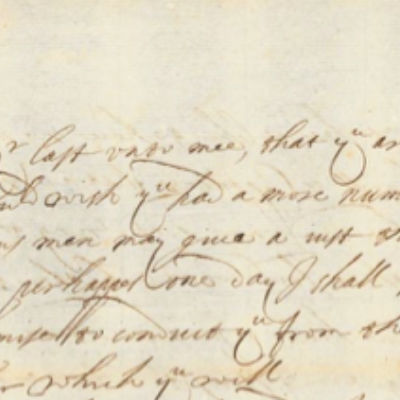 last unto mee, that yu ar
wish yu had a more num
men may give a iust
perhapps one day I shall
to conduct yu from th
which yu will